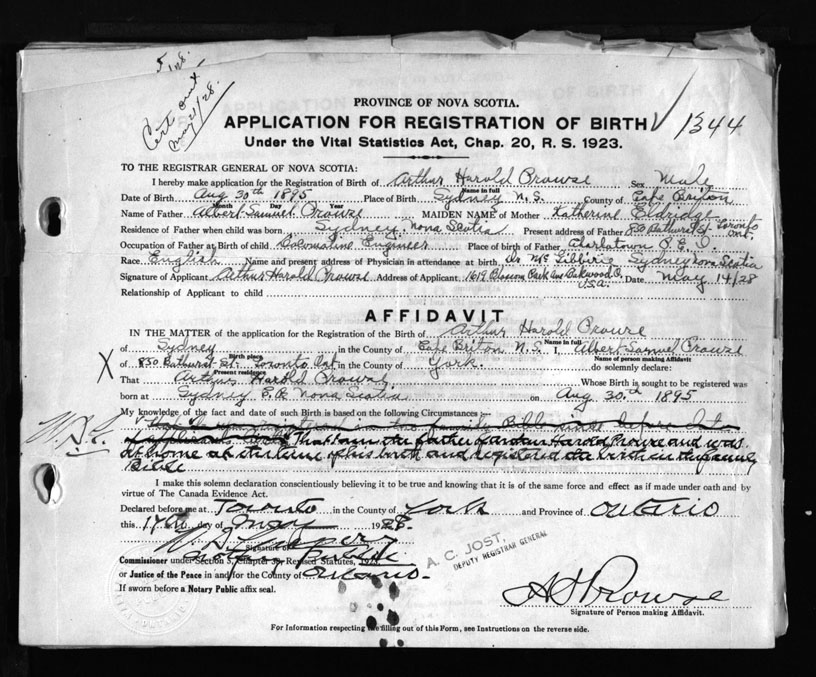 5 ms.
Cert out
May 21/28.
PROVINCE OF NOVA SCOTIA.
APPLICATION FOR REGISTRATION OF BIRTH √ 1344
Under the Vital Statistics Act, Chap. 20, R. S. 1923.
TO THE REGISTRAR GENERAL OF NOVA SCOTIA:
I hereby make application for the Registration of Birth of Arthur Harold Prowse Sex Male
Name in full
Date of Birth Aug 30th 1895 Place of Birth Sydney N. S. County of Cape Briton
Month Day Year
Name of Father Albert Samuel Prowse MAIDEN NAME of Mother Katherine Eldridge
Residence of Father when child was born Sydney, Nova Scotia Present address of Father 850 Bathurst St. Toronto Ont.
Occupation of Father at Birth of child Engineer Place of birth of Father Charlotown P. E. I.
Race English Name and present address of Physician in attendance at birth Dr. Mc Sydney Nova Scotia
Signature of Applicant Arthur Harold Prowse Address of Applicant 1619 Park Ave Oakwood O. U.S.A. Date May 14/28
Relationship of Applicant to child
AFFIDAVIT
IN THE MATTER of the application for the Registration of the Birth of Arthur Harold Prowse
Name in full
of Sydney in the County of Cape Briton N. S. I, Albert Samuel Prowse
Birth place Name of person making Affidavit
X of 850 Bathurst St. Toronto Ont in the County of York. do solemnly declare:
Present residence
That Arthur Harold Prowse Whose Birth is sought to be registered was
born at Sydney C. B. Nova Scotia on Aug 30th 1895
My knowledge of the fact and date of such Birth is based on the following Circumstances:—
in the family Bible
That I am the father of Arthur Harold Prowse and was
at home at the time of his birth and registered the birth in the family
Bible
I make this solemn declaration conscientiously believing it to be true and knowing that it is of the same force and effect as if made under oath and by
virtue of The Canada Evidence Act.
Declared before me at Toronto in the County of York and Province of Ontario
this 17th day of May 1928.
Signature of
Notary Public
A. C. JOST,
DEPUTY REGISTRAR GENERAL
Commissioner under Section 3, Chapter 39, Revised Statutes, 1923.
or Justice of the Peace in and for the County of Ontario.
If sworn before a Notary Public affix seal.
A S Prowse
Signature of Person making Affidavit.
For Information respecting the filling out of this Form, see Instructions on the reverse side.